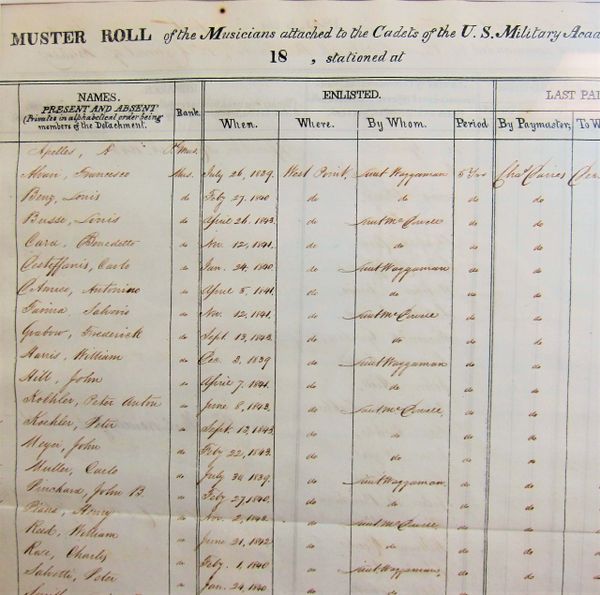 MUSTER ROLL of the Musicians attached to the Cadets of the U. S. Military
18 , stationed at
NAMES.
PRESENT AND ABSENT
(Privates in alphabetical order being
members of the Detachment.
Rank.
ENLISTED.
LAST
When. Where. By Whom. Period By Paymaster,
Apelles, A Mus.
Francesco Mus. July 26, 1839. West Point, Lieut Waggaman 5 yrs Chas Davies
Benz, Louis do Feby 27, 1840 do do do do
Busse, Louis do April 26, 1843. do Lieut McDowell do do
Cara, Benedetto do Nov. 12, 1841. do do do do
Carlo do Jan. 24, 1840. do Lieut Waggaman do do
D'Amico, Antonino do April 5, 1841. do do do do
Farina, do Nov. 12, 1841. do Lieut McDowell do do
Grabow, Frederick do Sept. 13, 1843. do do do do
Harris, William do Dec. 2, 1839 do Lieut Waggaman do do
Hill, John do April 7, 1841. do do do do
Koehler, Peter Anton do June 8, 1843. do Lieut McDowell, do do
Koehler, Peter do Sept. 12, 1843. do do do do
Meyer, John do Feby 22, 1843. do do do do
Muller, Carlo do July 30 1839. do Lieut Waggaman, do do
Pinchard, John B. do Feby 27, 1840. do do do do
Henry do Nov. 2, 1842. do Lieut McDowell do do
Reed, William do June 21, 1842 do do do do
Rose, Charles do Feby 1, 1840 do Lieut Waggaman, do do
Salvetti, Peter do Jan. 24, 1840 do do do do